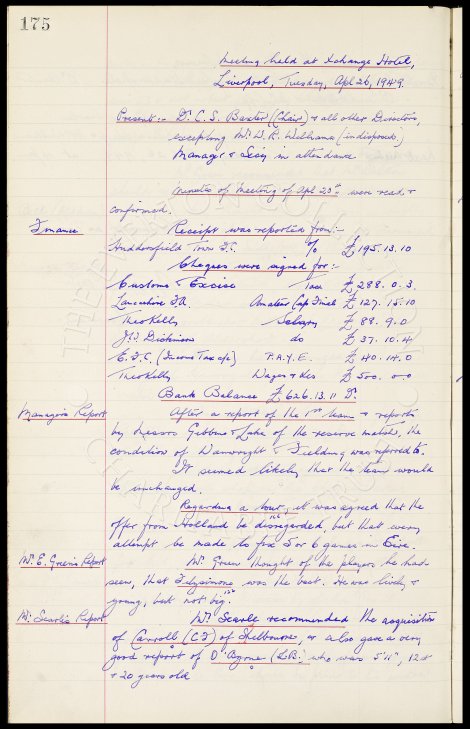 175
Meeting held at Exchange Hotel,
Liverpool, Tuesday, Apl 26, 1949.
Present:- Dr. C. S. Baxter (Chair) & all other Directors,
excepting Mr. W. R. Williams (indisposed)
Manager & Secy in attendance
Minutes of Meeting of Apl 20th were read &
confirmed.
Finance Receipt was reported from:-
Huddersfield Town F.C. % £195.13.10
Cheques were signed for:-
Customs & Excise Tax £288.0.3.
Lancashire F.A. Amateur Cup Final £127.15.10
Theo Kelly Salary £88.9.0
J. W. Dickinson do £37.10.4
E.F.C. (Income Tax a/c) P.A.Y.E. £40.14.0
Theo Kelly Wages & Xes £500.0.0
Bank Balance £626.13.11 Dr.
Manager's Report After a report of the 1st team & reports
by Messrs Gibbins & Luke of the reserve match, the
condition of Wainwright & Fielding was referred to.
It seemed likely that the team would
be unchanged.
Regarding a tour, it was agreed that the
offer from Holland be disregarded, but that every
attempt be made to fix 5 or 6 games in Eire.
Mr. E. Green's Report Mr. Green thought of the players he had
seen, that Fitzsimons was the best. He was lively &
young, but not big.
Mr. Searle's Report Mr. Searle recommended the acquisition
of Carroll (CF) of Shelbourne, & also gave a very
good report of O'Byrne (L.B.) who was 5'11", 12st
& 20 years old